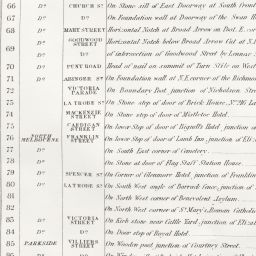 66 Do CHURCH ST On Stone sill of East Doorway at South Front
67 Do Do On Foundation wall at Doorway of the Swan
68 Do MARY STREET Horizontal Notch at Broad Arrow on Post
69 Do GOODWOOD STREET Horizontal Notch below Broad Arrow
Do of intersection of Goodwood Street by
70 Do PUNT ROAD Head of nail on summit of Turn Stile on West
71 Do ABINGER ST On Foundation wall at N.E. corner of the Richmond
72 Do VICTORIA PARADE On Boundary Post junction of Nicholson
73 Do LA TROBE ST On Stone step of door of Brick House, No. 216
74 Do MACKENZIE STREET On Stone step of door of Mistletoe Hotel
75 Do CARDIGAN STREET On lower Step of door of Hotel junction
76 NORTH MELBOURNE FRANKLIN STREET On lower Step of door of Lamb Inn, junction of
77 Do On South East corner of Cemetery.
78 Do On Stone at door of Flag Staff Station House
79 Do SPENCER ST On Corner of Glenmore Hotel, junction of Franklin
80 Do LA TROBE ST On South West angle of Barrack Gate, junction of
81 On North West corner of Benevolent Asylum
82 On North West corner of St Mary's Roman Catholic
83 Do VICTORIA STREET On Kirb stone near Cattle Yard, junction of
84 Do Do On Door step of Royal Hotel.
85 PARKSIDE VILLIERS STREET On Wooden post junction of Courtney Street.